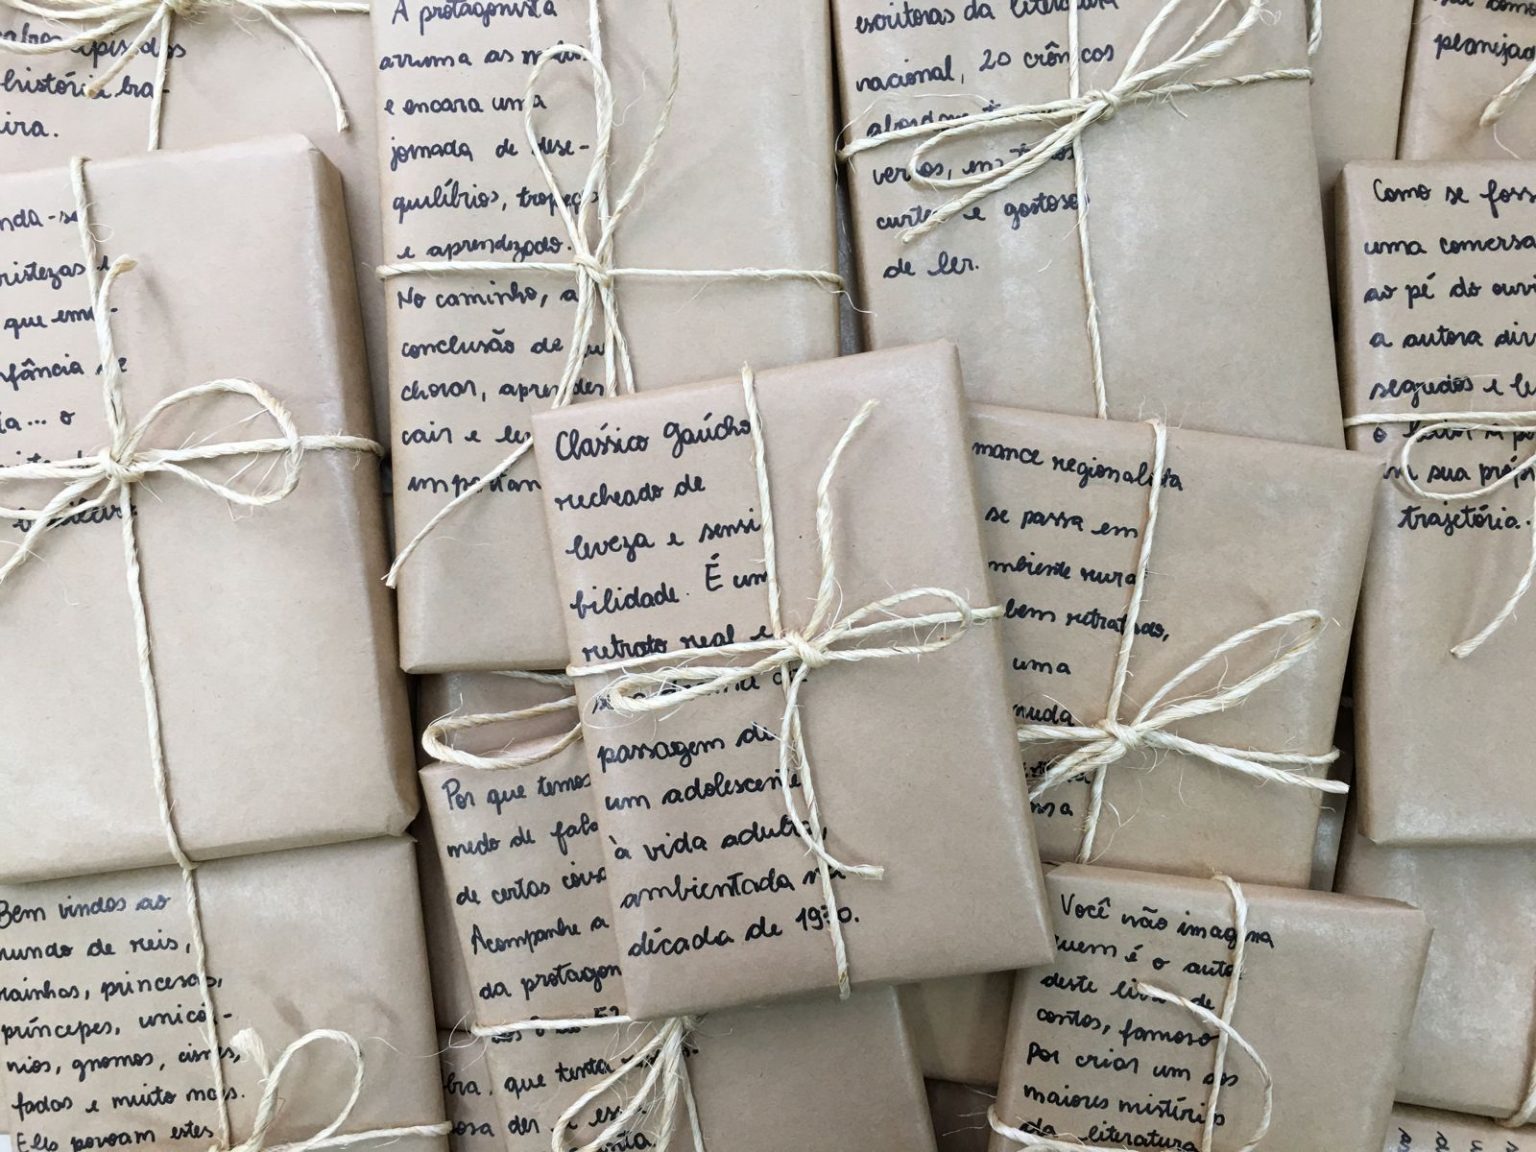 história bra-
A protagonista
arruma as malas
e encara uma
jornada de dese-
quilíbrios, tropeços
e aprendizado.
No caminho, a
conclusão de
chorar, aprender
cair e
escritoras da literatura
nacional, 20 crônicas
versos, em
curtos e gostosos
de ler.
planejad
Como se foss
uma conversa
ao pé do ouvi
a autora divi
segredos e le
o leitor a
em sua própr
trajetória.
nda-se
tristezas e
que eme-
nfância de
ia... o
brasileira.
Clássico gaúcho
recheado de
leveza e sensi
bilidade. É um
retrato real e
passagem de
um adolescente
à vida adulta,
ambientada na
década de 1930.
mance regionalista
se passa em
mbiente rural
bem retratados,
uma
muda
Por que temos
medo de fala
de certas coisa
Acompanhe a
da protagon
que tenta
Bem vindos ao
mundo de reis,
rainhas, princesas,
príncipes, unicór-
nios, gnomos, cisnes,
fadas e muito mais.
Eles povoam estes
Você não imagina
quem é o autor
deste livro de
contos, famoso
por criar um dos
maiores mistérios
da literatura